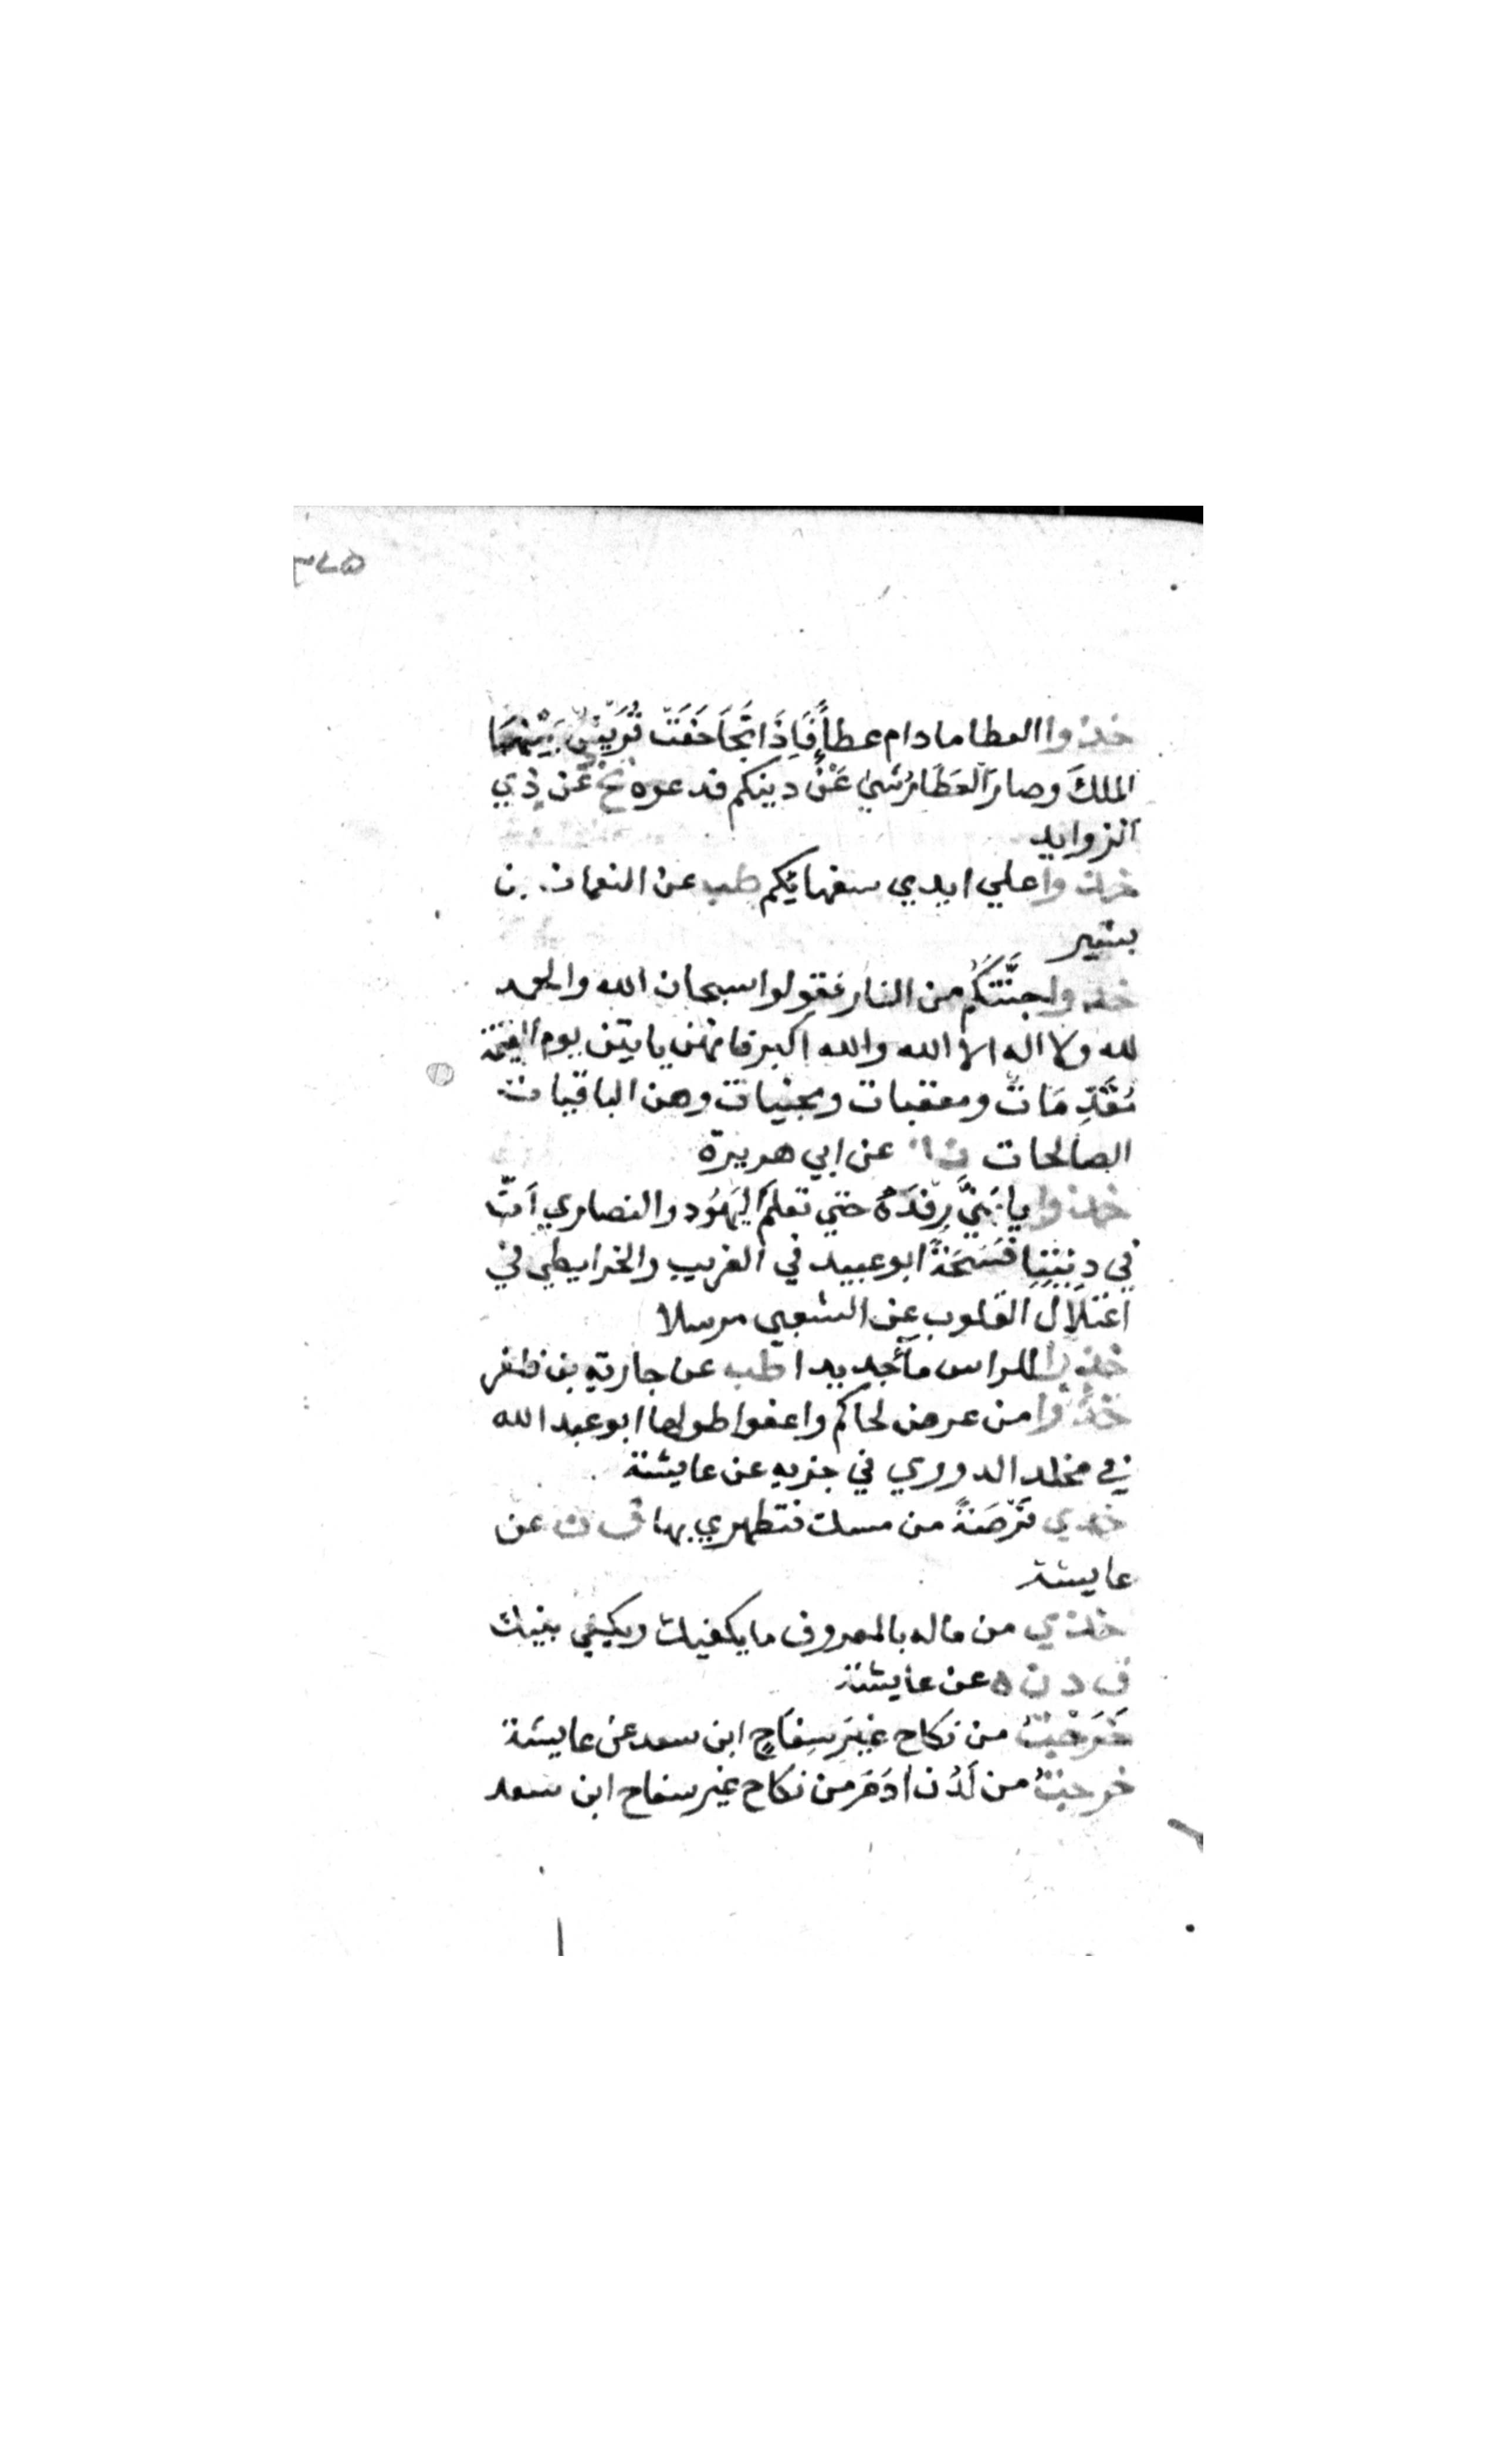 ٣٤٥
خذوا العطا مادام عطأً فَاِذَا تَجَاحَفَتْ قُرَيْشٌ بَيْنَهَا
الملكَ وصارَ العَطَا رُشىً عَنْ دينكم فدعوه تخ عن ذي
الزوايد
خذوا علي ايدي سفهايكم طب عن النعمان بن
بشير
خذوا جنَّتَكُم من النار فقولوا سبحان الله والحمد
لله ولا اله الا الله والله اكبر فانهن ياتين يوم القيمة
مُقَدِّمَاتٌ ومعقبات ومجنبات وهن الباقيات
الصالحات ن عن ابي هريرة
خذوا يا بَنِي رِفدَةَ حتي تعلَمَ اليَهُود والنصاري اَنّ
في ديننِا فُسْحَةً ابو عبيد في الغريب والخرايطي في
اعتلال القلوب عن الشعبي مرسلا
خذوا للراس مآجديدا طب عن جارية بن ظفر
خذوا من عرض لحاكم واعفوا طولها ابو عبد الله
بن مخلد الدوري في جزيه عن عايشة
خذي فَرْصَةً من مسك فتطهري بها ق ن عن
عايشة
خذي من ماله بالمعروف ما يكفيك ويكفي بنيك
ق د ن ه عن عايشة
خَرَجْتُ من نكاح غَيْرَ سِفَاحٍ ابن سعد عن عايشة
خرجتُ من لَدُن ادَمَ من نكاح غير سفاح ابن سعد